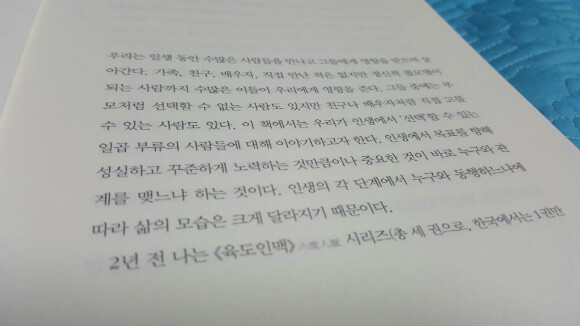 우리는 일생 동안 수많은 사람들을 만나고 그들에게 영향을 받으며 살
아간다. 가족, 친구, 배우자, 직접 만난 적은 없지만 정신적 롤모델이
되는 사람까지 수많은 이들이 우리에게 영향을 준다. 그들 중에는 부
모처럼 선택할 수 없는 사람도 있지만 친구나 배우자처럼 직접 고를
수 있는 사람도 있다. 이 책에서는 우리가 인생에서 '선택'할 수 있는
일곱 부류의 사람들에 대해 이야기하고자 한다. 인생에서 목표를 향해
성실하고 꾸준하게 노력하는 것만큼이나 중요한 것이 바로 누구와 관
계를 맺느냐 하는 것이다. 인생의 각 단계에서 누구와 동행하느냐에
따라 삶의 모습은 크게 달라지기 때문이다.
2년 전 나는 《육도인맥》 시리즈(총 세 권으로, 한국에서는 1권만